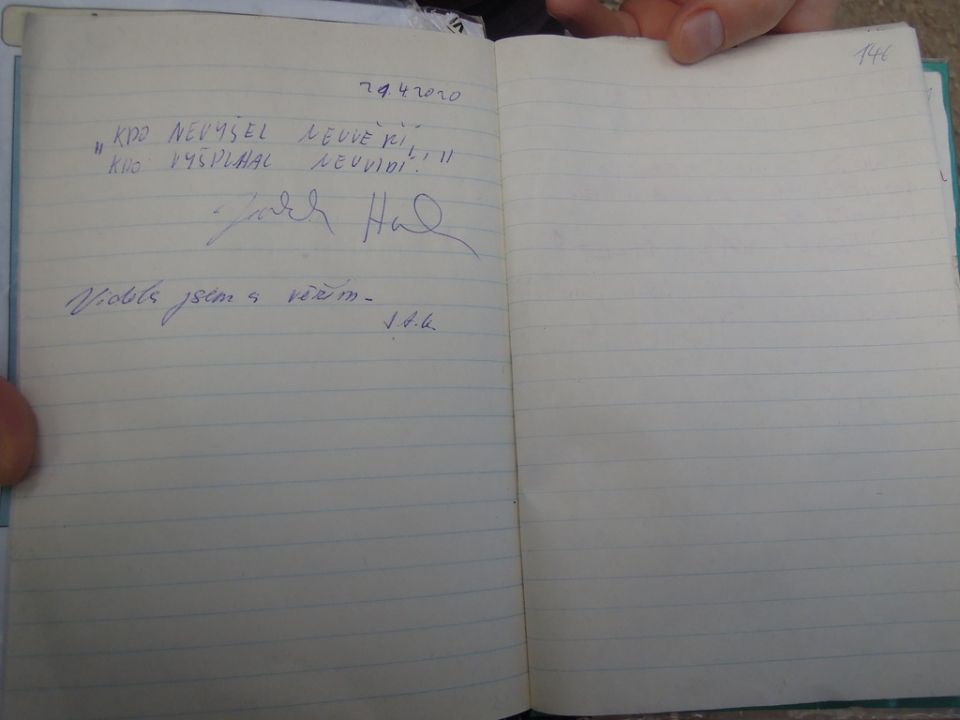 29.4.2020
„KDO NEVYŠEL NEUVĚŘÍ,
KDO VYŠPLHAL NEUVIDÍ!"
Viděla jsem a věřím -
146